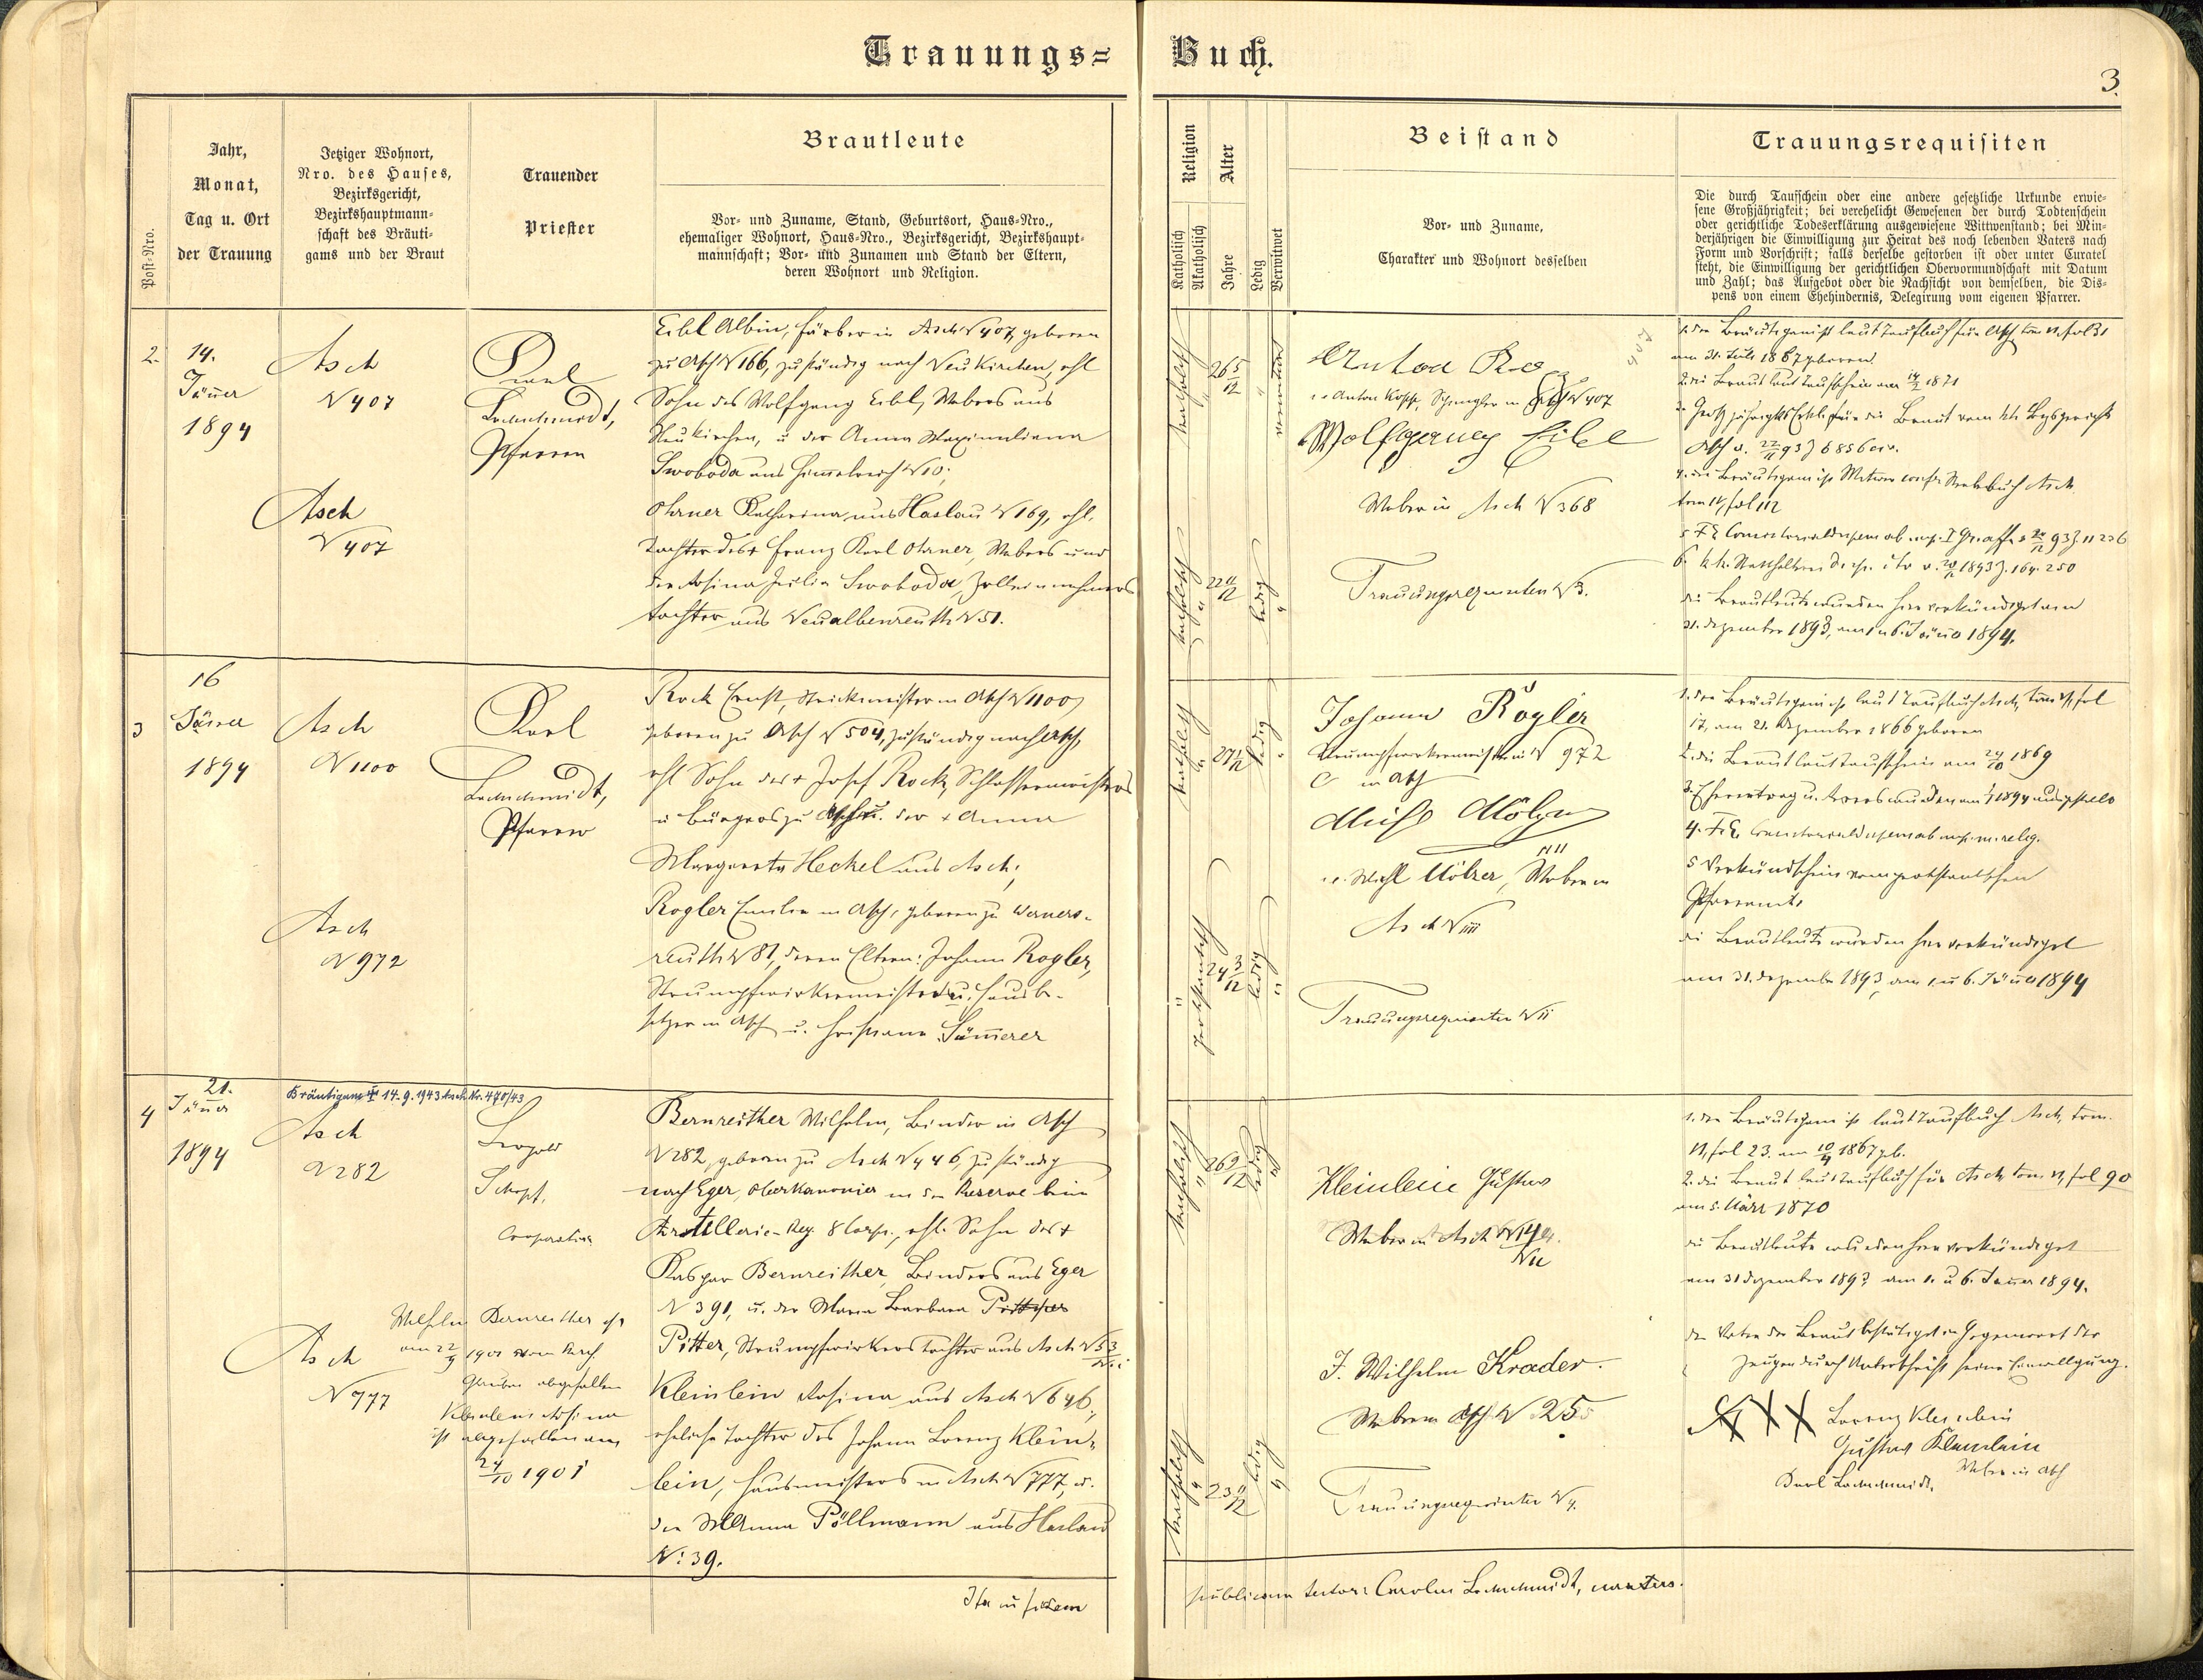 Trauungs=
Buch.
3.
Post-Nro.
Jahr,
Monat,
Tag u. Ort
der Trauung
Jetziger Wohnort,
Nro. des Hauses,
Bezirksgericht,
Bezirkshauptmann-
schaft des Bräuti-
gams und der Braut
Trauender
Priester
Brautleute
Vor- und Zuname, Stand, Geburtsort, Haus-Nro.,
ehemaliger Wohnort, Haus-Nro., Bezirksgericht, Bezirkshaupt-
mannschaft; Vor- und Zunamen und Stand der Eltern,
deren Wohnort und Religion.
Religion
Katholisch
Akatholisch
Alter
Jahre
Ledig
Verwitwet
Beistand
Vor- und Zuname,
Charakter und Wohnort desselben
Trauungsrequisiten
Die durch Taufschein oder eine andere gesetzliche Urkunde erwie-
sene Großjährigkeit; bei verehelicht Gewesenen der durch Todtenschein
oder gerichtliche Todeserklärung ausgewiesene Wittwenstand; bei Min-
derjährigen die Einwilligung zur Heirat des noch lebenden Vaters nach
Form und Vorschrift; falls derselbe gestorben ist oder unter Curatel
steht, die Einwilligung der gerichtlichen Obervormundschaft mit Datum
und Zahl; das Aufgebot oder die Nachsicht von demselben, die Dis-
pens von einem Ehehindernis, Delegirung vom eigenen Pfarrer.
2.
14.
Jänner
1894
Asch
N 407
Asch
N 407
Karl
Lochschmidt,
Pfarrer
Eibl Albin, Färber in Asch N 407, geboren
zu Asch N 166, zuständig nach Neukirchen, ehl
Sohn des Wolfgang Eibl, Webers aus
Neukirchen, u der Anna Maximiliana
Swoboda aus Himmelreich N 10;
Ohrner Katharina aus Haslau N 169, ehl.
Tochter des + Franz Karl Ohrner, Webers und
der Rosina Zezilia Swoboda, Zolleinnehmers
tochter aus Neualbenreuth N 51.
katholisch
26 5/12
verwitwet
katholisch
22 11/12
ledig
Anton
Anton Kopp, Spengler in Asch N 407
Wolfgang Eibl
Weber in Asch N 368
Trauungsrequisiten N 3.
1. der Bräutigam ist laut Taufbuch für Asch
am 31. Juli 1867 geboren.
2. die Braut laut Taufschein am 14/2 1871
Asch v. 22/11 93 Z 6856 civ.
die Brautleute wurden hier verkündiget am
31. Dezember 1893, am 1 u 6. Jänner 1894.
3
16
Jänner
1894
Asch
N 1100
Asch
N 972
Karl
Lochschmidt,
Pfarrer
Rock Ernst, Strickmeister in Asch N 1100,
geboren zu Asch N 504, zuständig nach Asch,
ehl Sohn des + Josef Rock, Schlossermeisters
u Bürgers zu Asch u. der + Anna
Margareta Heckel aus Asch;
Rogler Emilie in Asch, geboren zu Werners-
reuth N 81, deren Eltern: Johann Rogler,
Strumpfwirkermeister u. Hausbe-
sitzer in Asch u. Sümmerer
katholisch
27 1/12
ledig
protestantisch
24 3/12
ledig
Johann Rogler
Strumpfwirkermeister N 972
in Asch
Weber in
Asch N
Trauungsrequisiten N
1. der Bräutigam ist laut Taufbuch Asch, tom VI, fol
17, am 21. Dezember 1866 geboren
2. die Braut laut Taufschein am 24/10 1869
5 Verkündschein vom protestantischen
Pfarramte
die Brautleute wurden hier verkündiget
am 31. Dezember 1893, am 1. u 6. Jänner 1894
4
21.
Jänner
1894
Bräutigam + 14.9.1943 Asch Nr. 470/43
Asch
N 282
Asch
N 777
Leopold
Schopf,
Cooperator
Wilhelm Bernreither ist
am 22/9 1901 vom kath.
Glauben abgefallen
Kleinlein Rosina
ist abgefallen am
24/10 1901
Bernreither Wilhelm, Binder in Asch
N 282, geboren zu Asch N 446, zuständig
nach Eger, Oberkanonier in der Reserve beim
Artillerie-Reg. 8 Corps, ehl. Sohn des +
Kaspar Bernreither, Binders aus Eger
N 391, u. der Maria Barbara
Pitter, Strumpfwirkers Tochter aus Asch N 53
Kleinlein Rosina aus Asch N 646,
eheliche Tochter des Johann Lorenz Klein-
lein, Hausmeisters in Asch N 777, u.
der Anna Pöllmann aus Haslau
N: 39.
katholisch
26 9/12
ledig
katholisch
23
ledig
Kleinlein Gustav
Weber in Asch
J. Wilhelm Krader.
Weber in Asch N 25
Trauungsrequisiten N 4.
1. der Bräutigam ist laut Taufbuch Asch, tom.
VI, fol 23. am 10/4 1867 geb.
2. die Braut laut Taufbuch für Asch tom VI, fol 90
am 5. März 1870
die Brautleute wurden hier verkündiget
am 31 Dezember 1893 am 1. u 6. Jänner 1894.
der Vater der Braut bestätiget in Gegenwart der
Zeugen durch Unterschrift seine Einwilligung.
XXX Lorenz Kleinlein
Gustav Kleinlein
Weber in Asch
Karl Lochschmidt.
Ita in fidem
publicam testor: Carolus Lochschmidt,